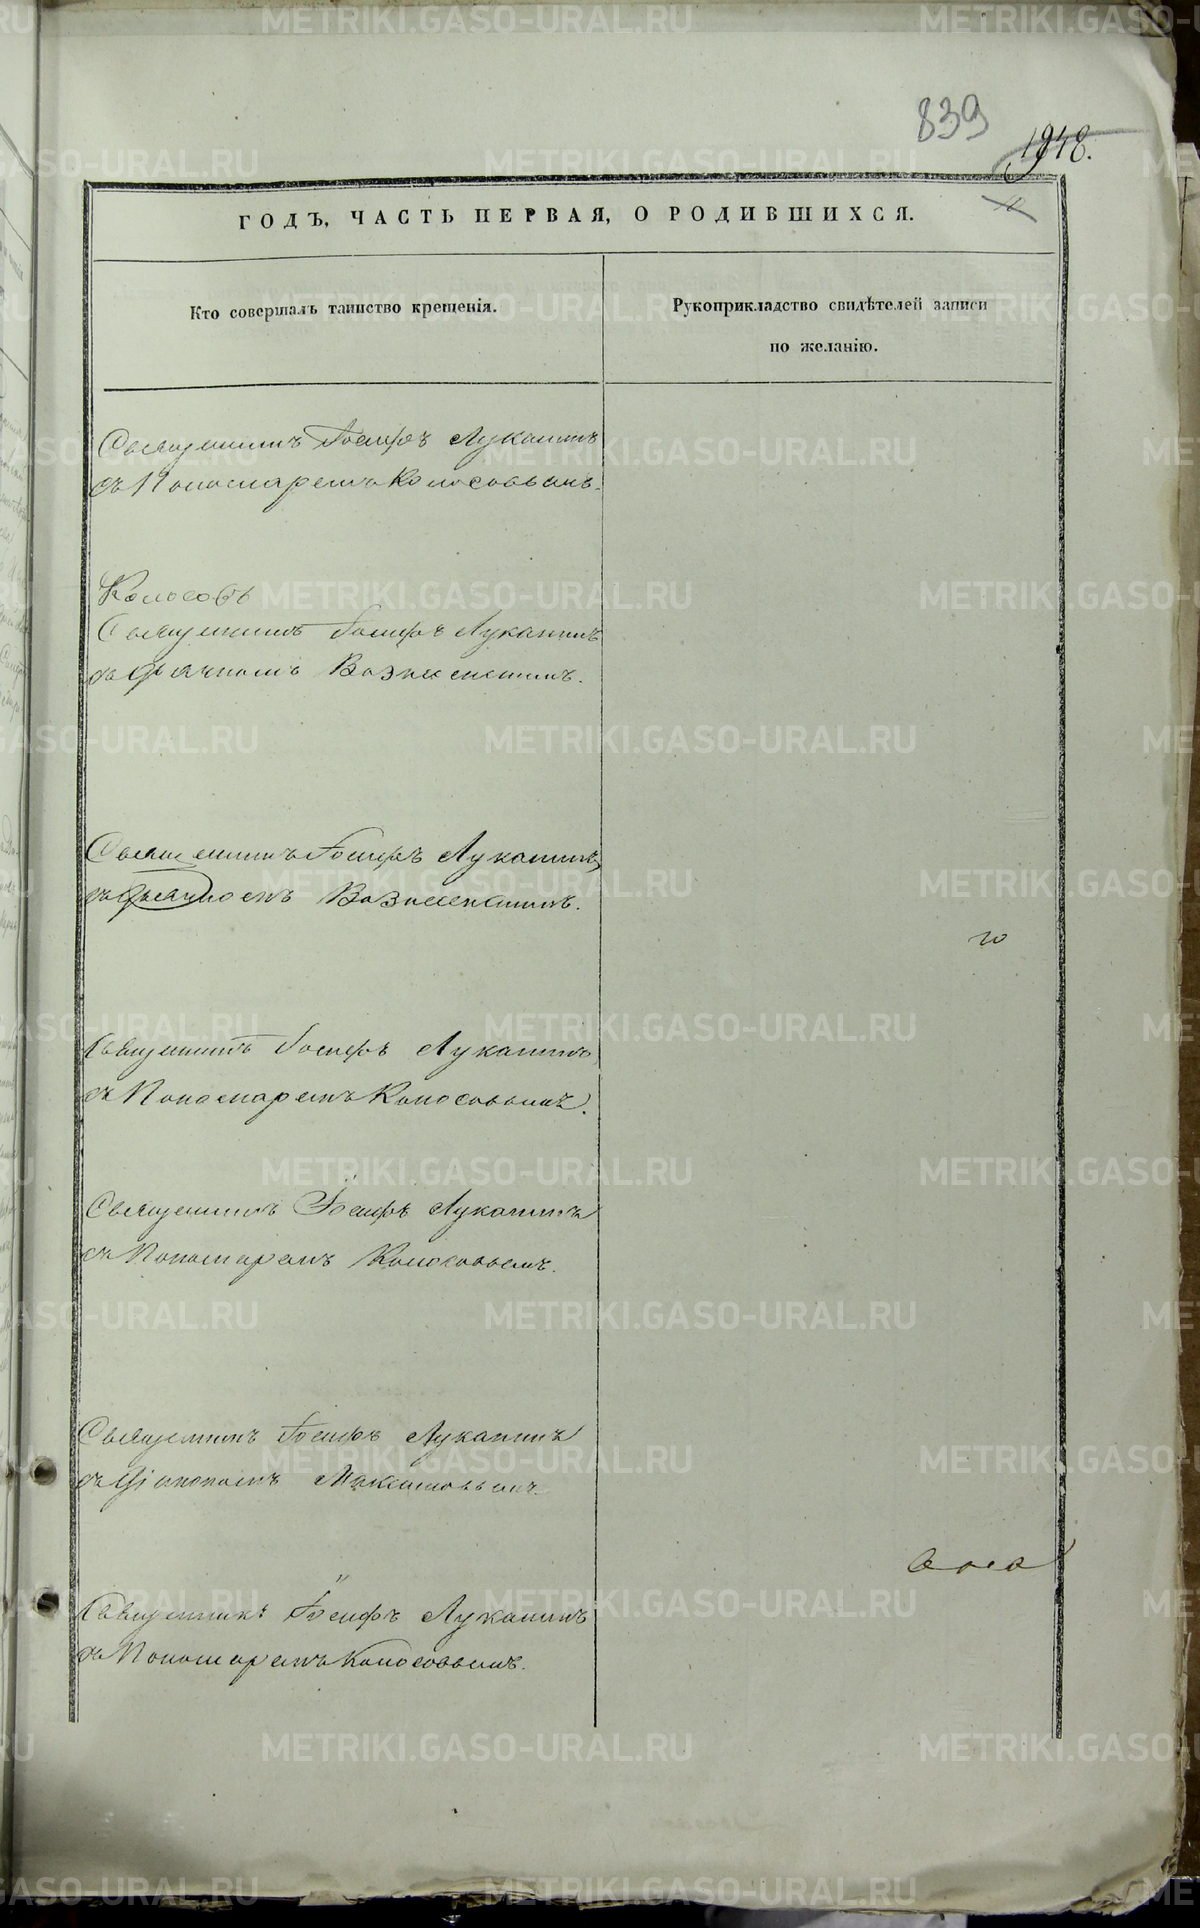 839
1948.
ГОДЪ, ЧАСТЬ ПЕРВАЯ, О РОДИВШИХСЯ.
Кто совершалъ таинство крещенія.
Рукоприкладство свидѣтелей записи
по желанію.
Священникъ Іосифъ Луканинъ
съ Пономаремъ Колосовымъ.
Колосовъ
Священникъ Іосифъ Луканинъ
съ Дьячкомъ Вознесенскимъ.
Священникъ Іосифъ Луканинъ
съ Дьячкомъ Вознесенскимъ.
го
Священникъ Іосифъ Луканинъ
съ Пономаремъ Колосовымъ.
Священникъ Іосифъ Луканинъ
съ Пономаремъ Колосовымъ.
Священникъ Іосифъ Луканинъ
съ Діакономъ Максимовымъ.
Священникъ Іосифъ Луканинъ
съ Пономаремъ Колосовымъ.
METRIKI.GASO-URAL.RU